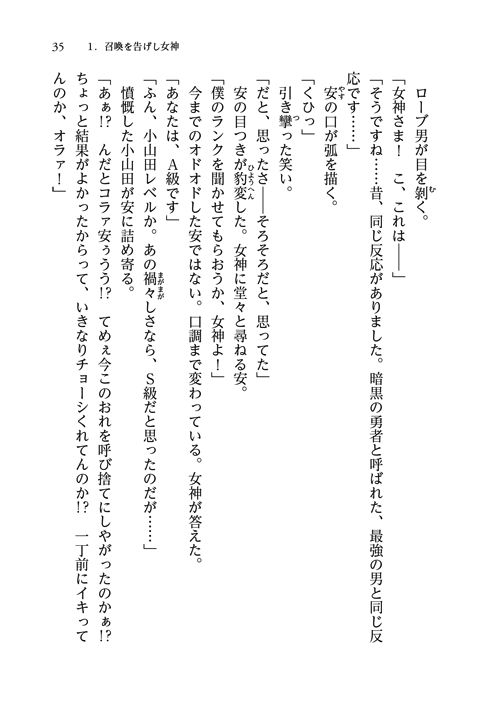 35　1．召喚を告げし女神
　ローブ男が目を剝く。
「女神さま！　こ、これは――」
「そうですね……昔、同じ反応がありました。暗黒の勇者と呼ばれた、最強の男と同じ反
応です……」
　安の口が弧を描く。
「くひっ」
　引き攣った笑い。
「だと、思ったさ――そろそろだと、思ってた」
　安の目つきが豹変した。女神に堂々と尋ねる安。
「僕のランクを聞かせてもらおうか、女神よ！」
　今までのオドオドした安ではない。口調まで変わっている。女神が答えた。
「あなたは、A級です」
「ふん、小山田レベルか。あの禍々しさなら、S級だと思ったのだが……」
　憤慨した小山田が安に詰め寄る。
「あぁ!?　んだとコラァ安ぅうう!?　てめぇ今このおれを呼び捨てにしやがったのかぁ!?
ちょっと結果がよかったからって、いきなりチョーシくれてんのか!?　一丁前にイキって
んのか、オラァ！」